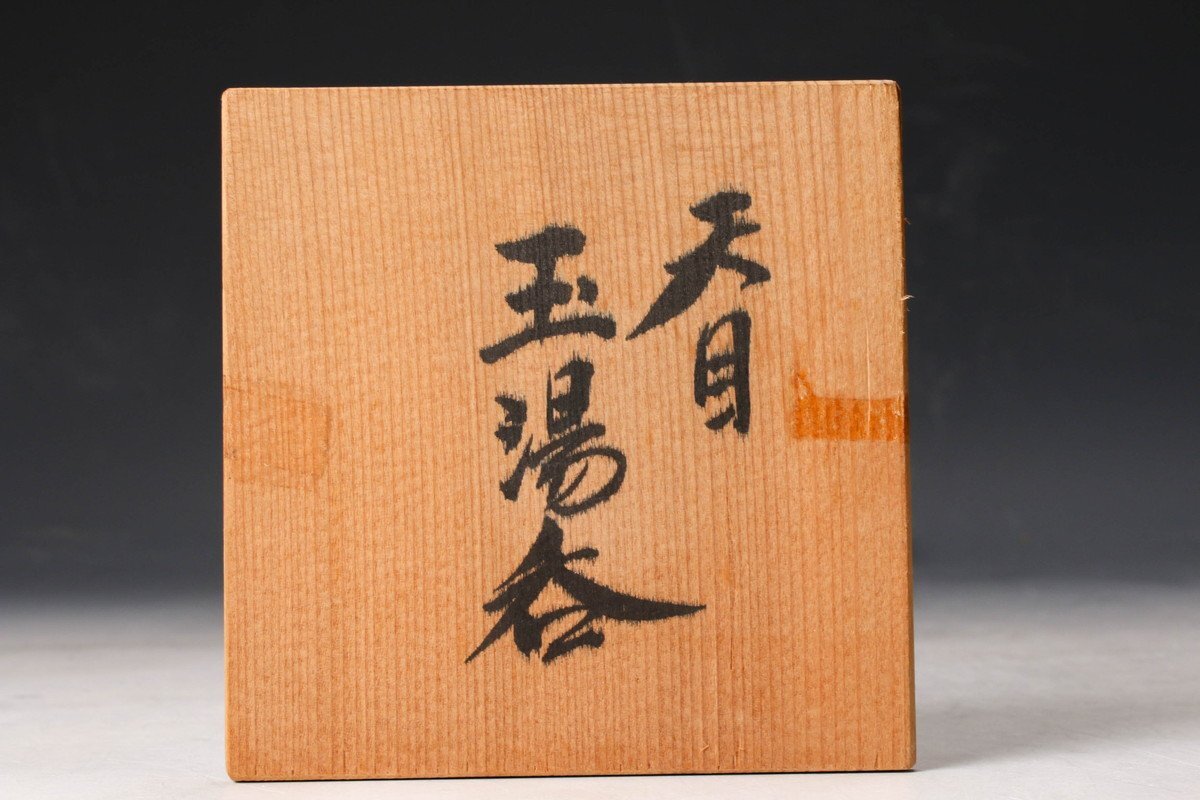 天目
玉湯呑